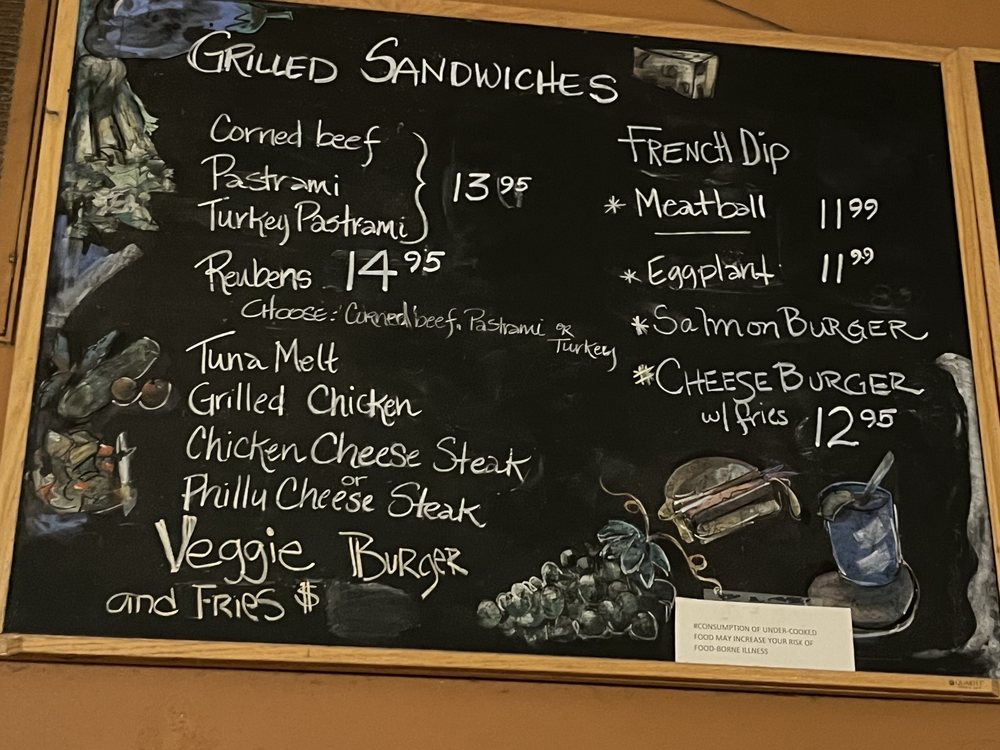 GRILLED SANDWICHES
Corned beef
Pastrami
Turkey Pastrami
13 95
Reubens 14 95
CHOOSE: Corned beef, Pastrami or
Turkey
Tuna Melt
Grilled Chicken
Chicken Cheese Steak
or
Philly Cheese Steak
Veggie Burger
and Fries $
FRENCH DIP
* Meatball 11 99
* Eggplant 11 99
* Salmon BURGER
* CHEESE BURGER
w/ fries 12 95
#CONSUMPTION OF UNDER-COOKED
FOOD MAY INCREASE YOUR RISK OF
FOOD-BORNE ILLNESS
QUARTET